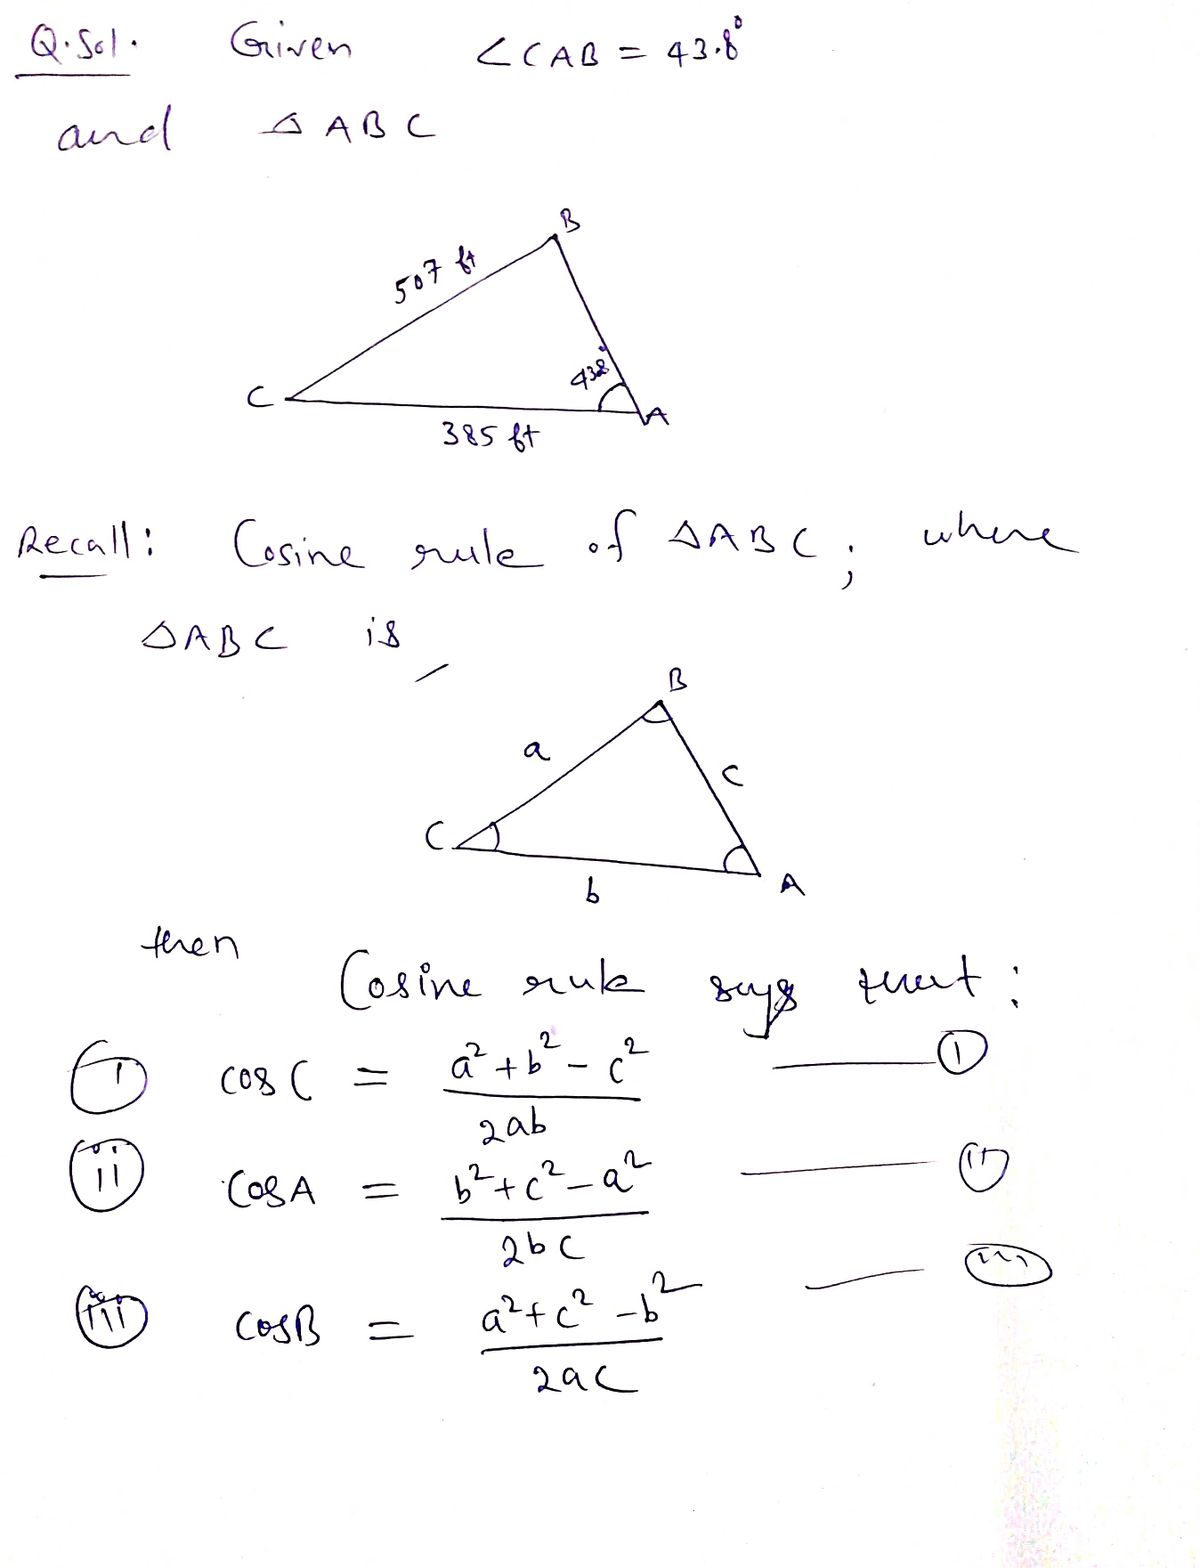 Q.Sol. Given ∠CAB = 43.8°
and △ABC
B
507 ft
43.8°
C
A
385 ft
Recall: Cosine rule of △ABC; where
△ABC is
B
a
c
C
b
A
then
Cosine rule says that:
(i) cos C = (a² + b² - c²) / 2ab ——— (i)
(ii) cos A = (b² + c² - a²) / 2bc ——— (ii)
(iii) cos B = (a² + c² - b²) / 2ac ——— (iii)